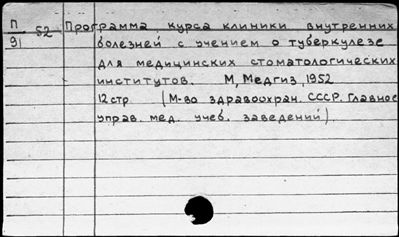 П/91 52 Программа курса клиники внутренних
болезней с учением о туберкулезе
для медицинских стоматологических
институтов. М, Медгиз, 1952
12 стр (М-во здравоохран. СССР. Главное
управ. мед. учеб. заведений)